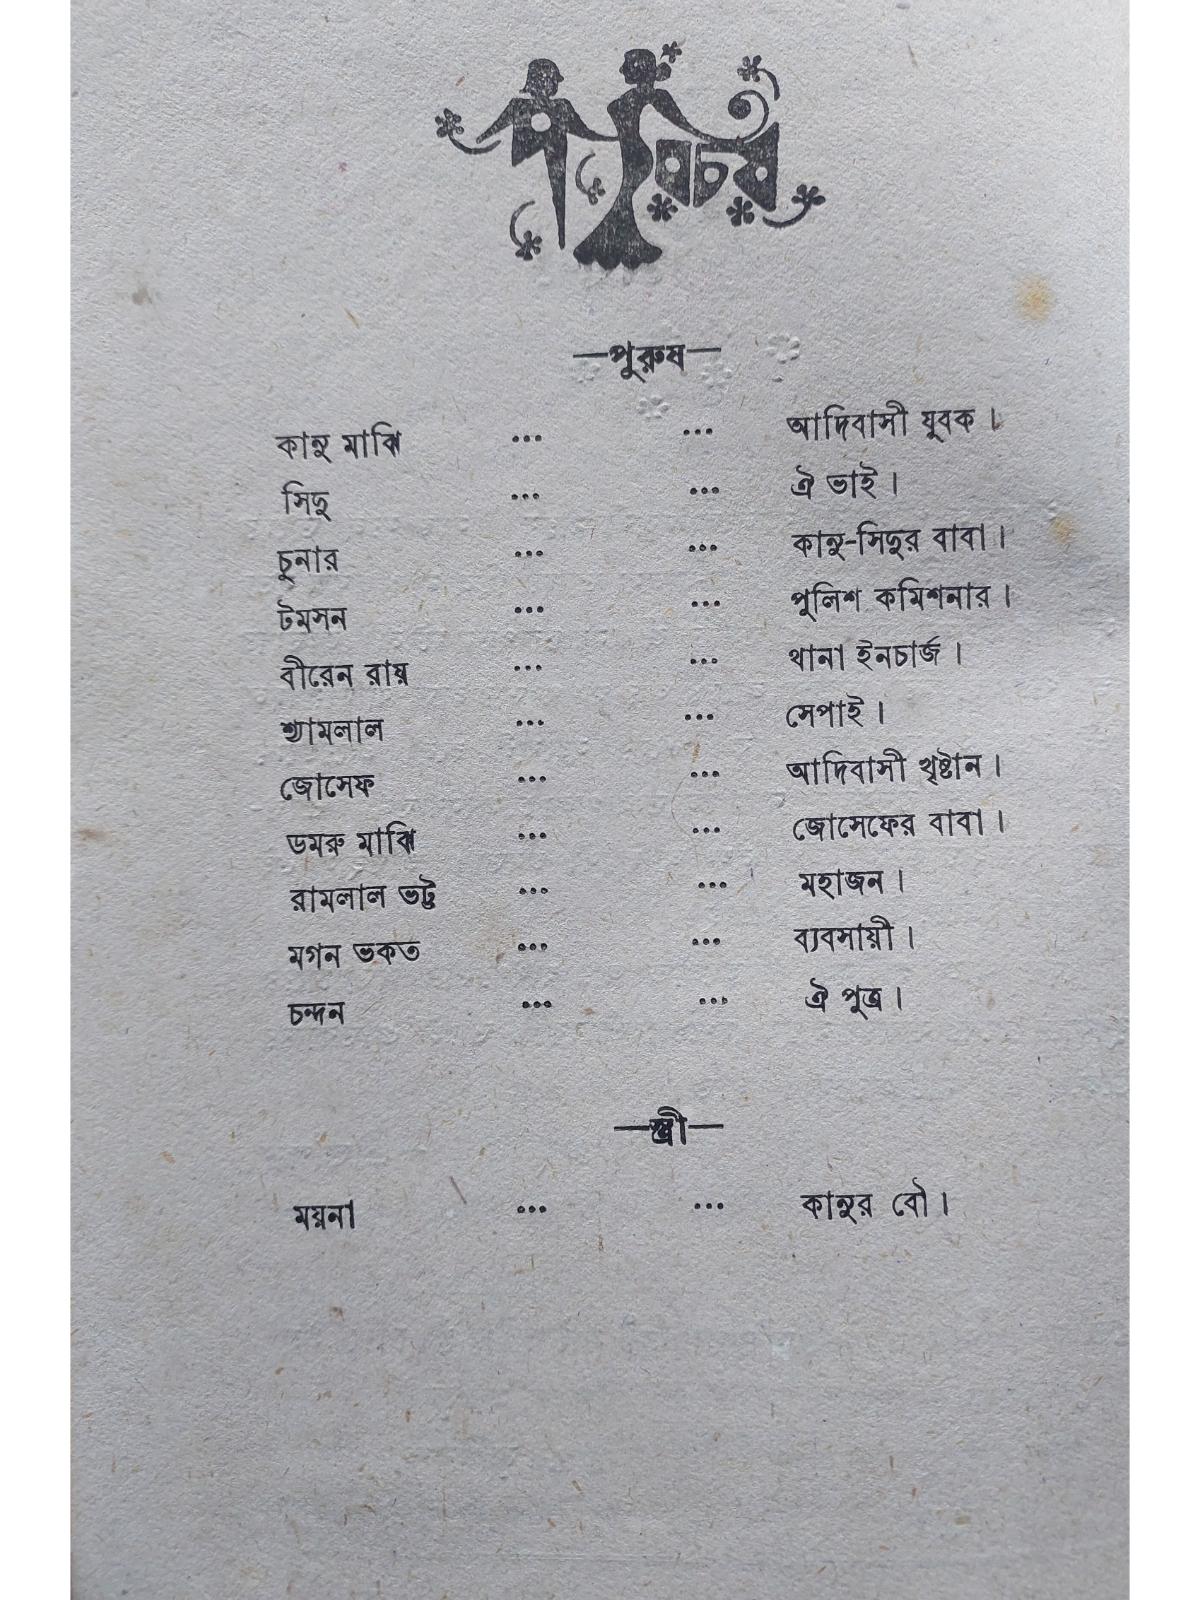 পরিচয়
—পুরুষ—
কানু মাঝি ... ... আদিবাসী যুবক ।
সিদু ... ... ঐ ভাই ।
চুনার ... ... কানু-সিদুর বাবা ।
টমসন ... ... পুলিশ কমিশনার ।
বীরেন রায় ... ... থানা ইনচার্জ ।
শ্যামলাল ... ... সেপাই ।
জোসেফ ... ... আদিবাসী খৃষ্টান ।
ডমরু মাঝি ... ... জোসেফের বাবা ।
রামলাল ভট্ট ... ... মহাজন ।
মগন ভকত ... ... ব্যবসায়ী ।
চন্দন ... ... ঐ পুত্র ।
—স্ত্রী—
ময়না ... ... কানুর বৌ ।